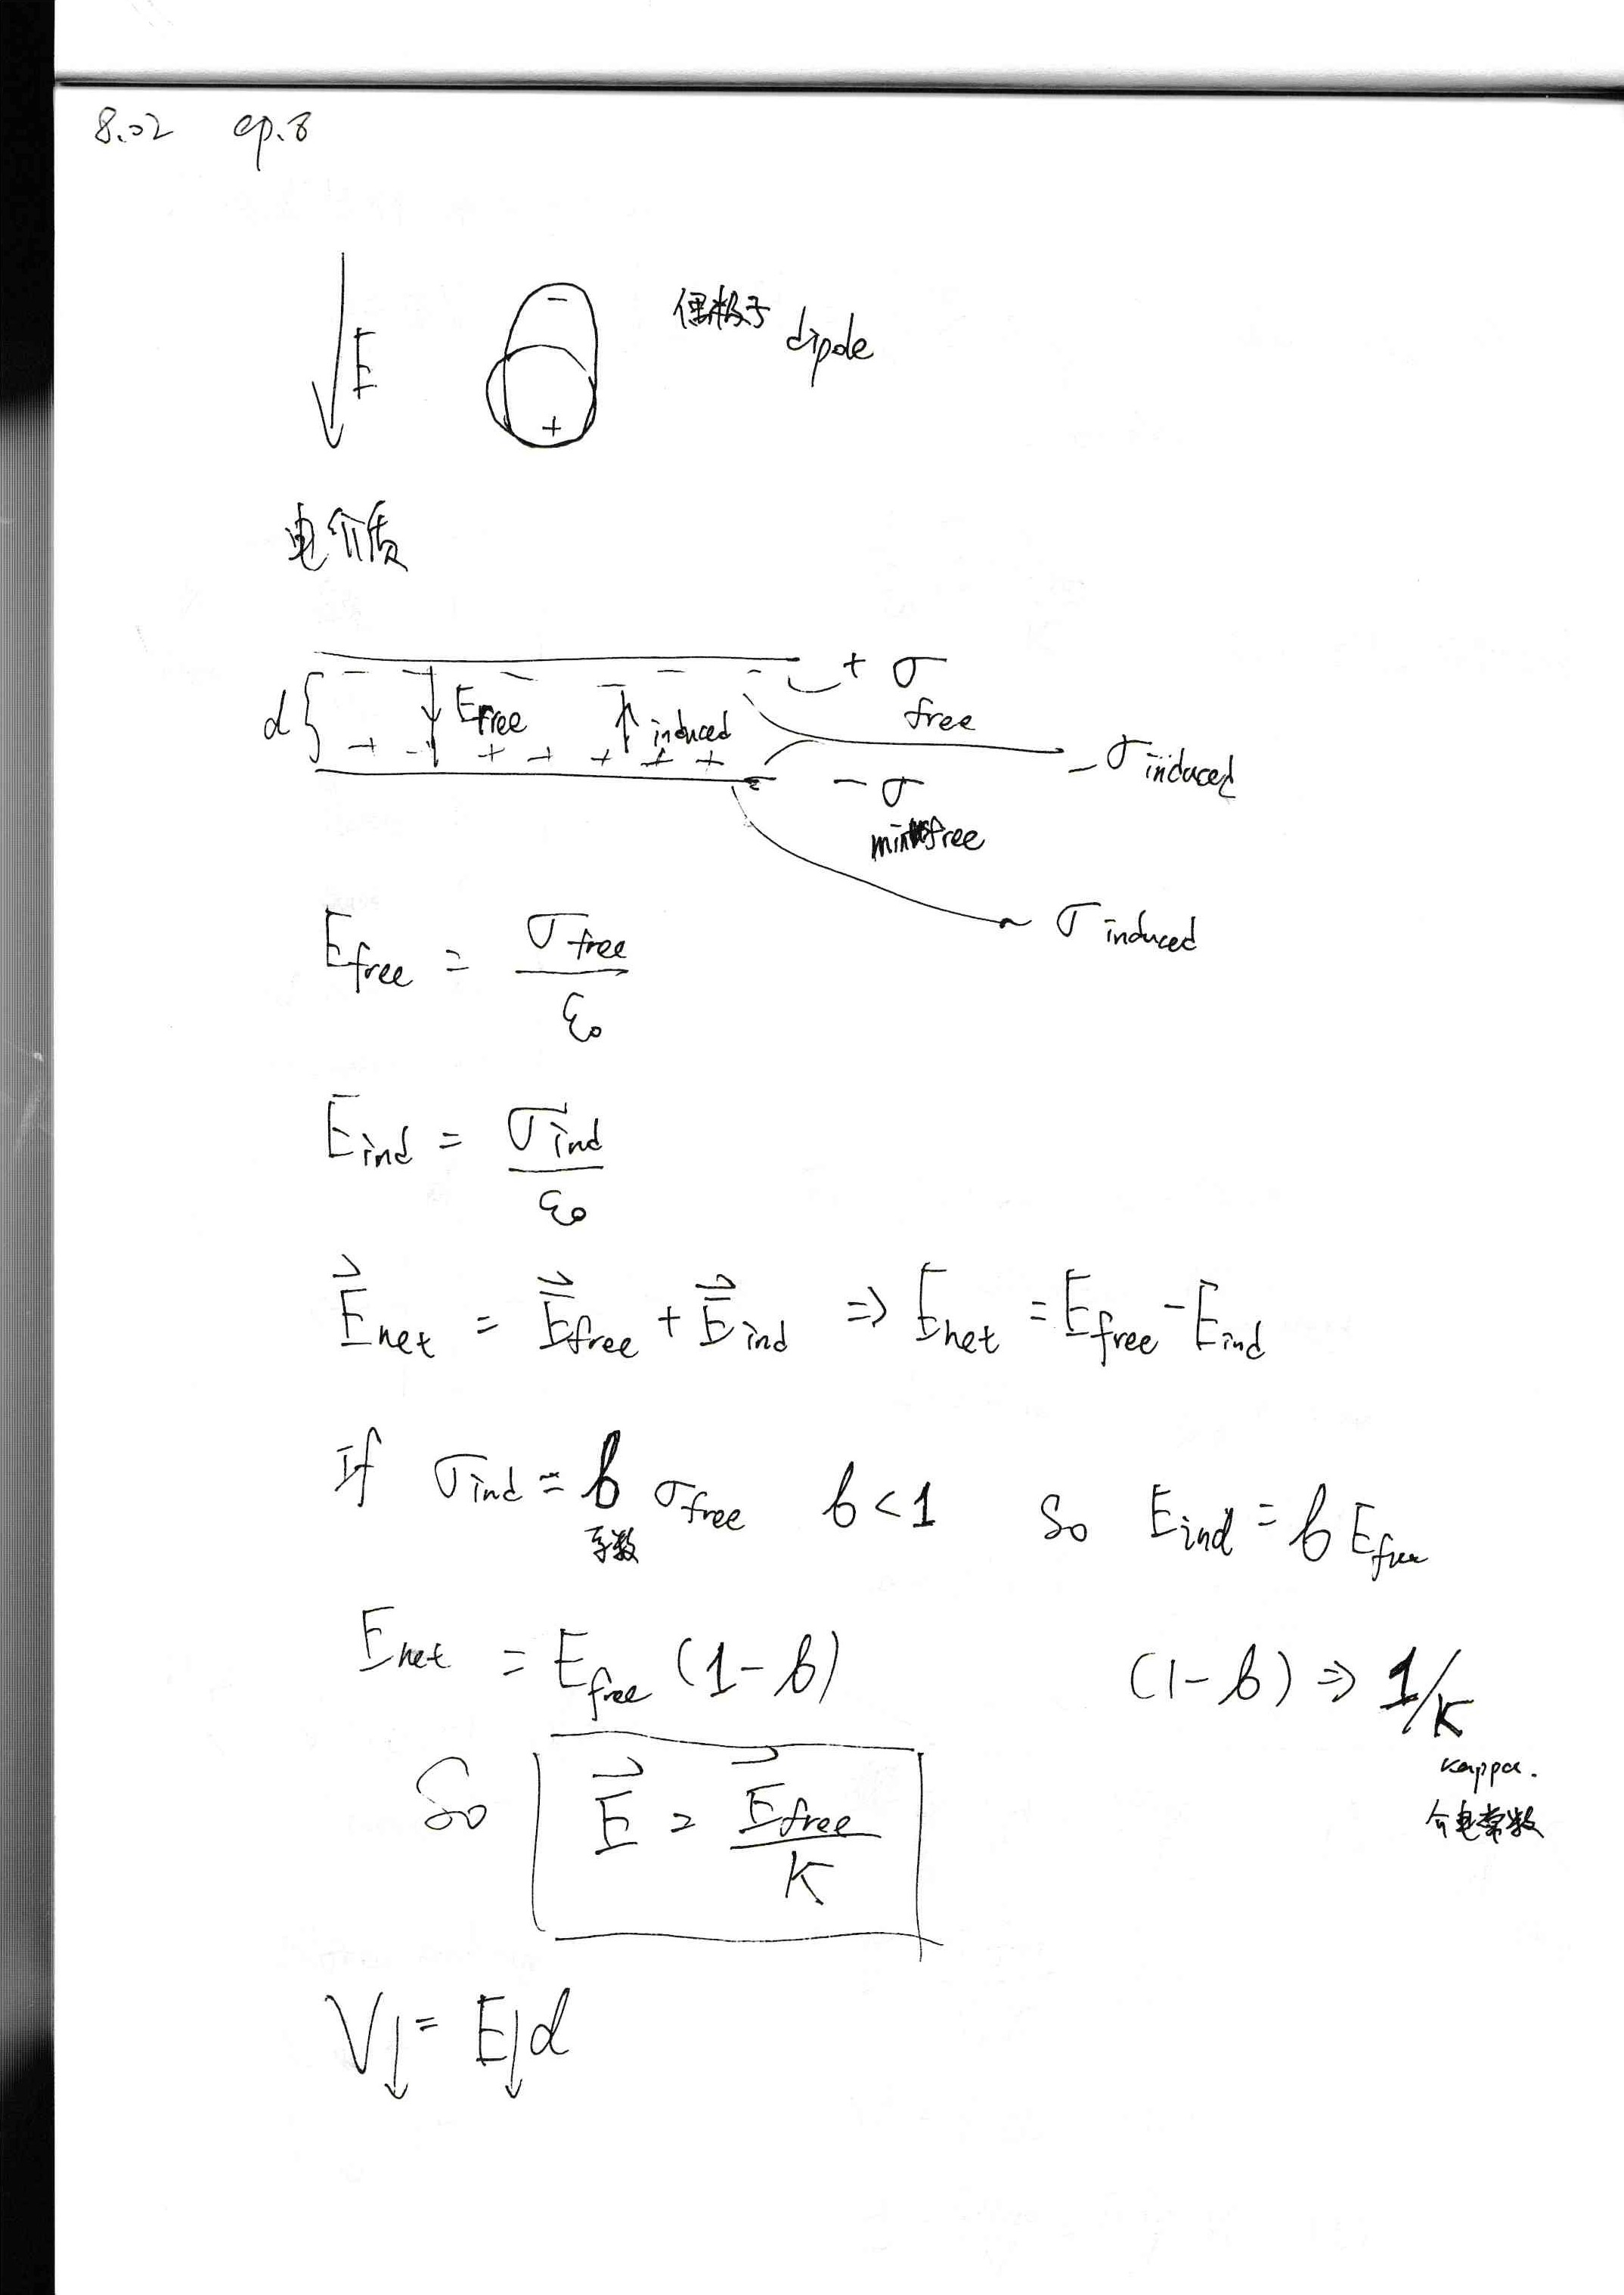 8.02 ep.8
E
-
偶极子 dipole
+
电介质
+ σ free
d { E free induced
- σ induced
- σ
free
σ induced
E free = σ free / ε₀
E ind = σ ind / ε₀
E⃗ net = E⃗ free + E⃗ ind ⇒ E net = E free - E ind
If σ ind = b σ free b < 1 So E ind = b E free
系数
E net = E free (1 - b) (1 - b) ⇒ 1/K
kappa.
介电常数
So E⃗ = E⃗ free / K
V↓ = E↓ d